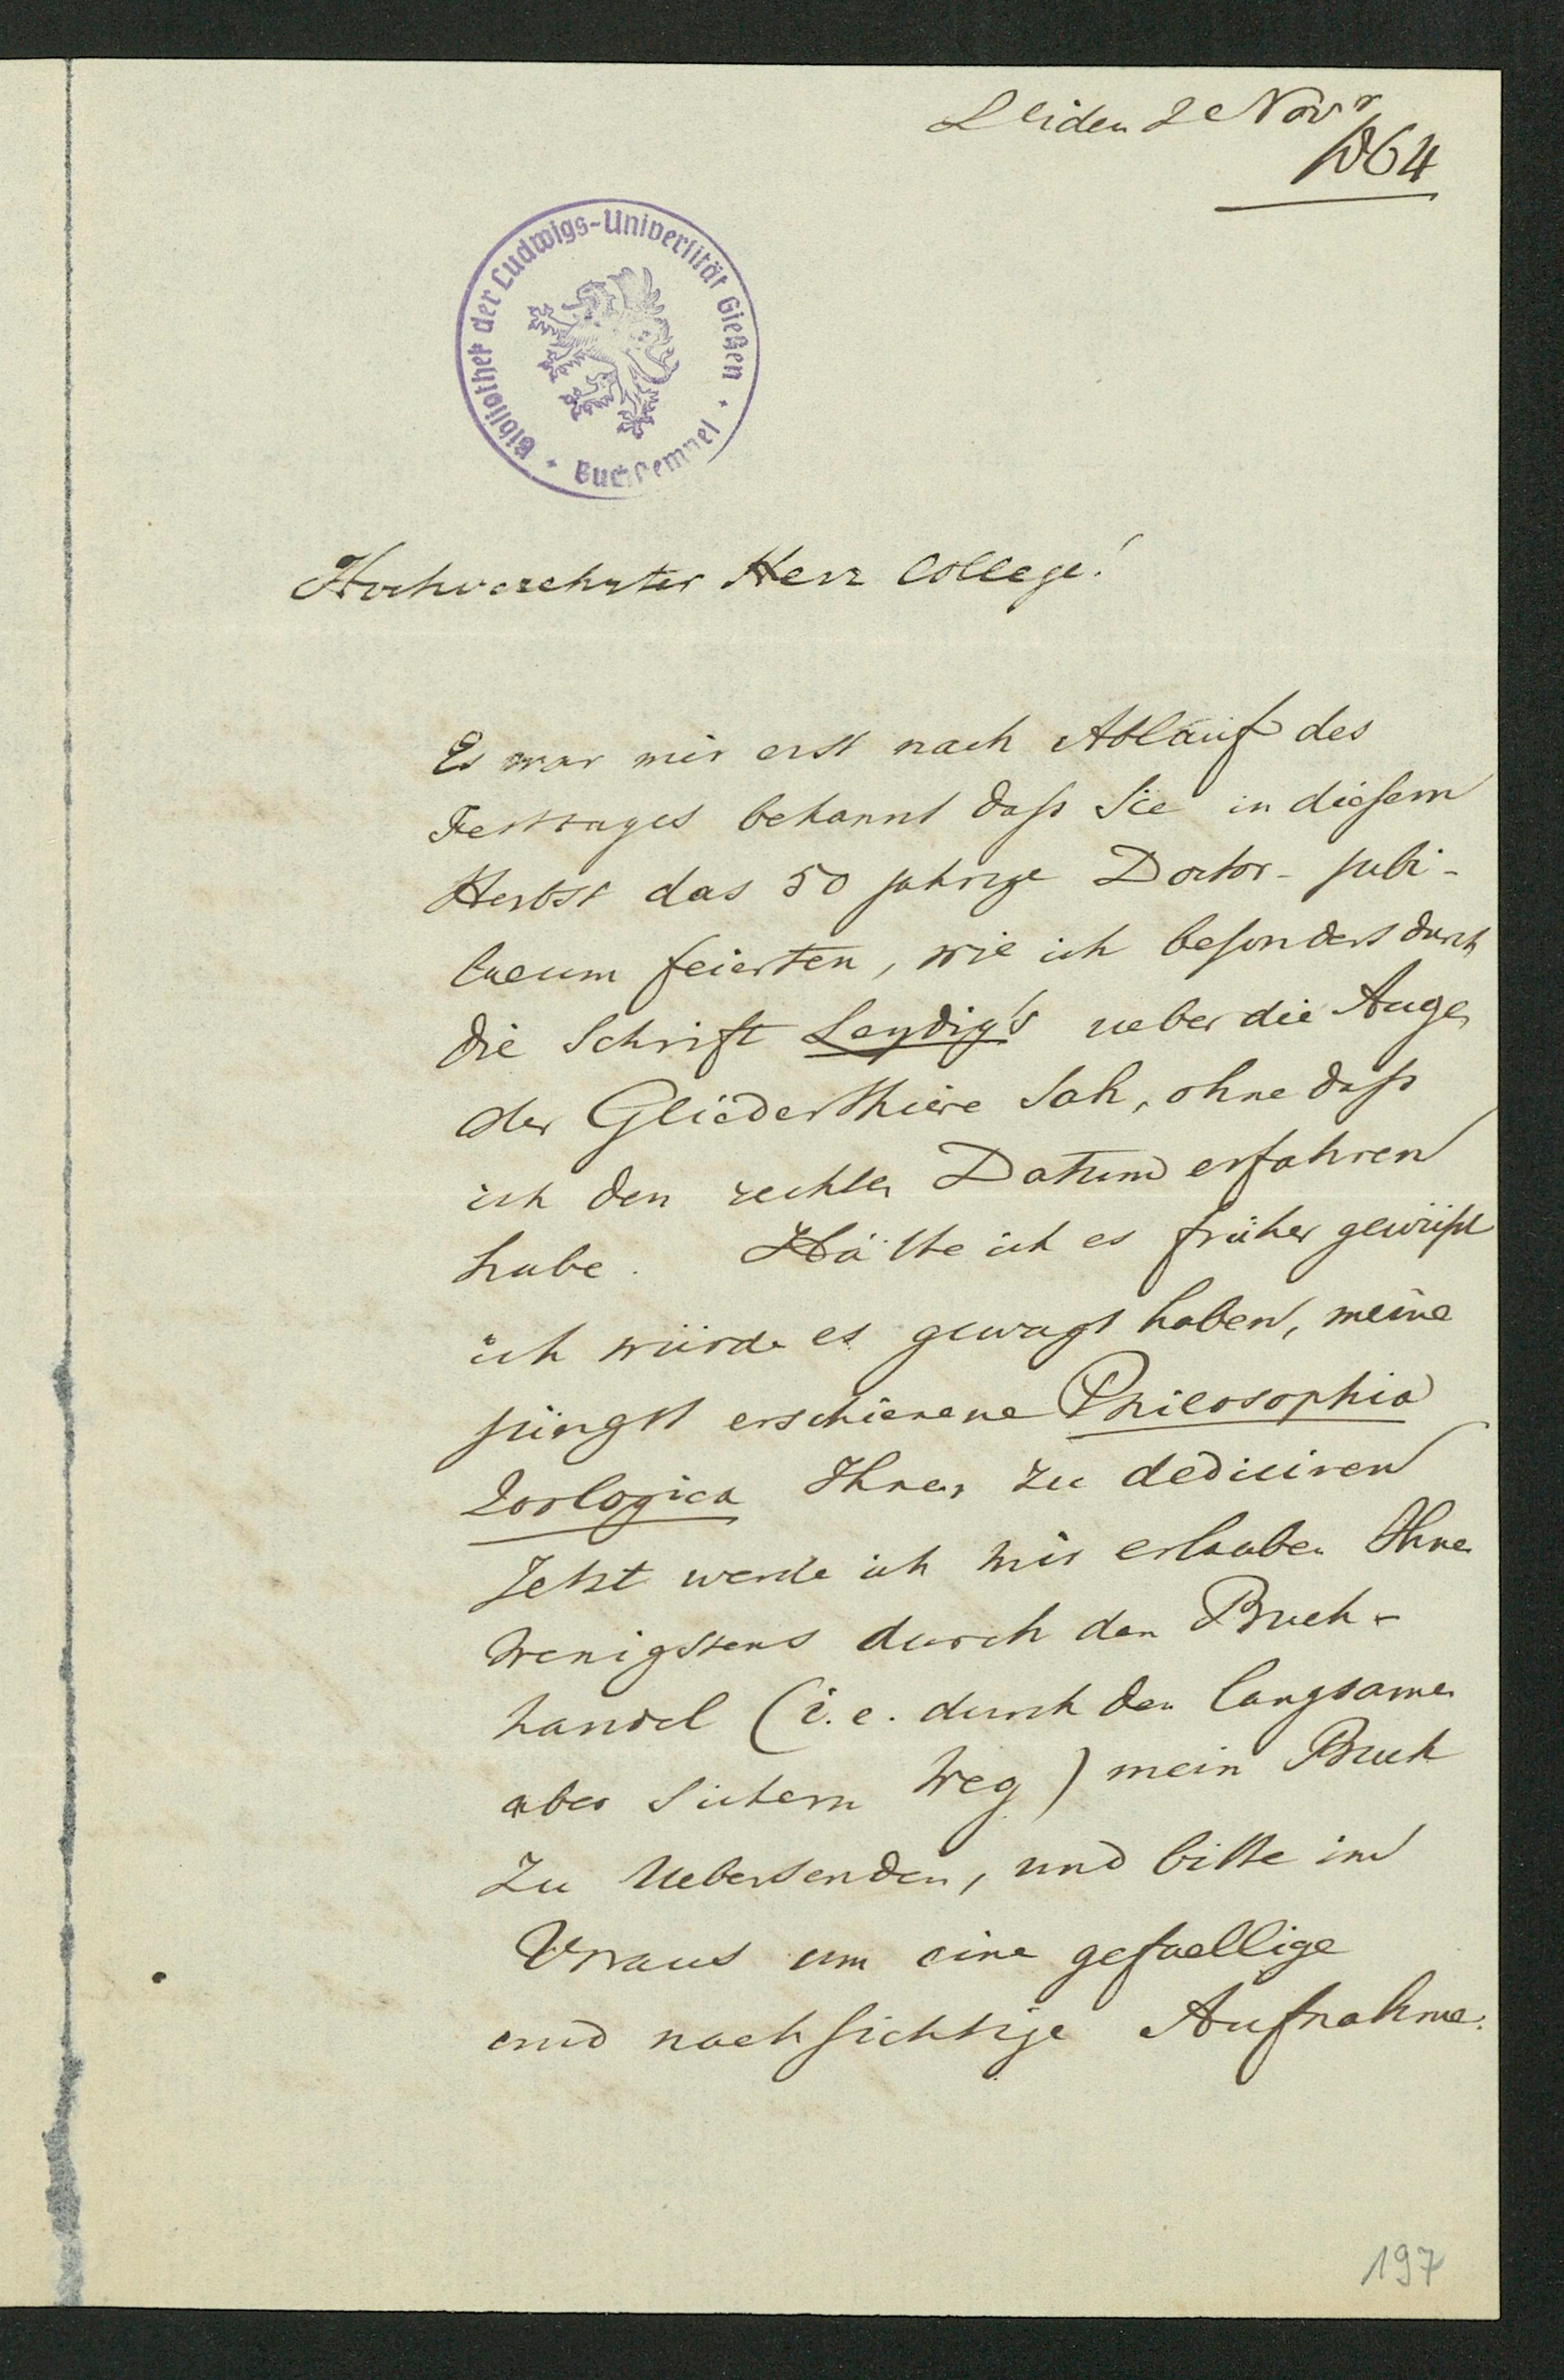 Leiden 2 Novr
1864
Bibliothek der Ludwigs-Universität Gießen
Buchstempel
Hochverehrter Herr College!
Es war mir erst nach Ablauf des
Festtages bekannt daſs Sie in dieſem
Herbst das 50 jahrige Doctor-Jubi-
laeum feierten, wie ich beſonders durch
die Schrift Leydig's ueber die Augen
der Gliederthiere sah, ohne daſs
ich den rechten Datum erfahren
habe. Hätte ich es früher gewüſst
ich würde es gewagt haben, meine
jüngst erschienene Philosophia
Zoologica Ihnen zu dediciren
Jetzt werde ich mir erlauben Ihnen
wenigstens durch den Buch-
handel (i.e. durch den langsamen
aber sichern Weg) mein Buch
zu Uebersenden, und bitte im
Voraus um eine gefaellige
und nachſichtige Aufnahme.
197